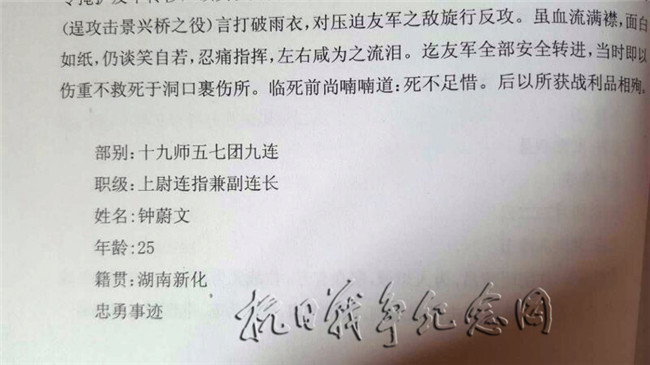 (逞攻击景兴桥之役)言打破雨衣，对压迫友军之敌旋行反攻。虽血流满襟，面白
如纸，仍谈笑自若，忍痛指挥，左右咸为之流泪。迄友军全部安全转进，当时即以
伤重不救死于洞口裹伤所。临死前尚喃喃道：死不足惜。后以所获战利品相殉。
部别：十九师五七团九连
职级：上尉连指兼副连长
姓名：钟蔚文
年龄：25
籍贯：湖南新化
忠勇事迹
抗日战争纪念网